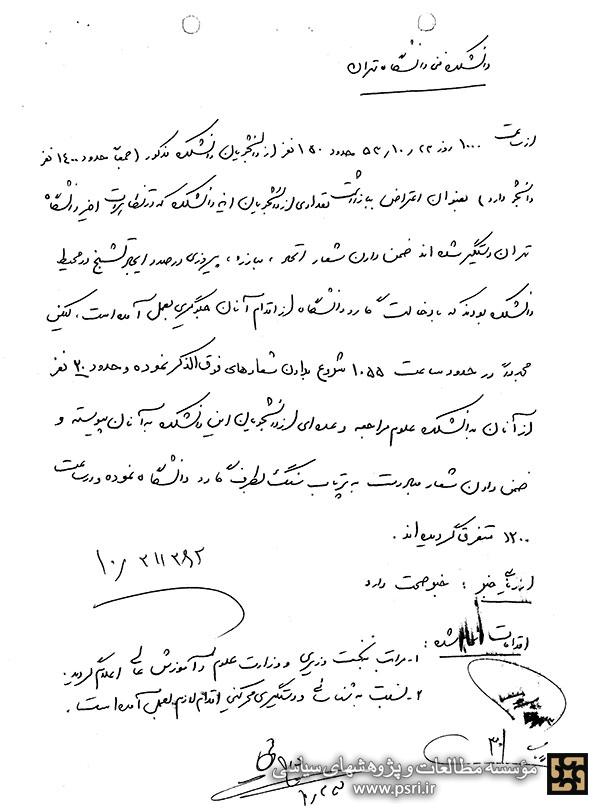 دانشکده فنی دانشگاه تهران
از ساعت ۱۰۰۰ روز ۵۳/۱۰/۲۲ حدود ۱۵۰ نفر از دانشجویان دانشکده مذکور (جمعاً حدود ۱۴۰۰ نفر
دانشجو دارد) بعنوان اعتراض ببازداشت تعدادی از دانشجویان این دانشکده که در تظاهرات اخیر دانشگاه
تهران دستگیر شده اند ضمن دادن شعار اتحاد، مبارزه، پیروزی درصدد ایجاد تشنج در محیط
دانشکده بودند که با دخالت گارد دانشگاه از اقدام آنان جلوگیری بعمل آمده است، لیکن
مجدداً در حدود ساعت ۱۰۵۵ شروع بدادن شعارهای فوق الذکر نموده و حدود ۳۰ نفر
از آنان به دانشکده علوم مراجعه و عده ای از دانشجویان این دانشکده به آنان پیوسته و
ضمن دادن شعار مبادرت به پرتاب سنگ بطرف گارد دانشگاه نموده و در ساعت
۱۲۰۰ متفرق گردیده اند.
ارزیابی خبر: خبر صحت دارد
اقدامات انجام شده:
۱- مراتب به نخست وزیری و وزارت علوم و آموزش عالی اعلام گردید.
۲- نسبت به شناسائی و دستگیری محرکین اقدام لازم بعمل آمده است.
مؤسسه مطالعات و پژوهشهای سیاسی
www.psri.ir